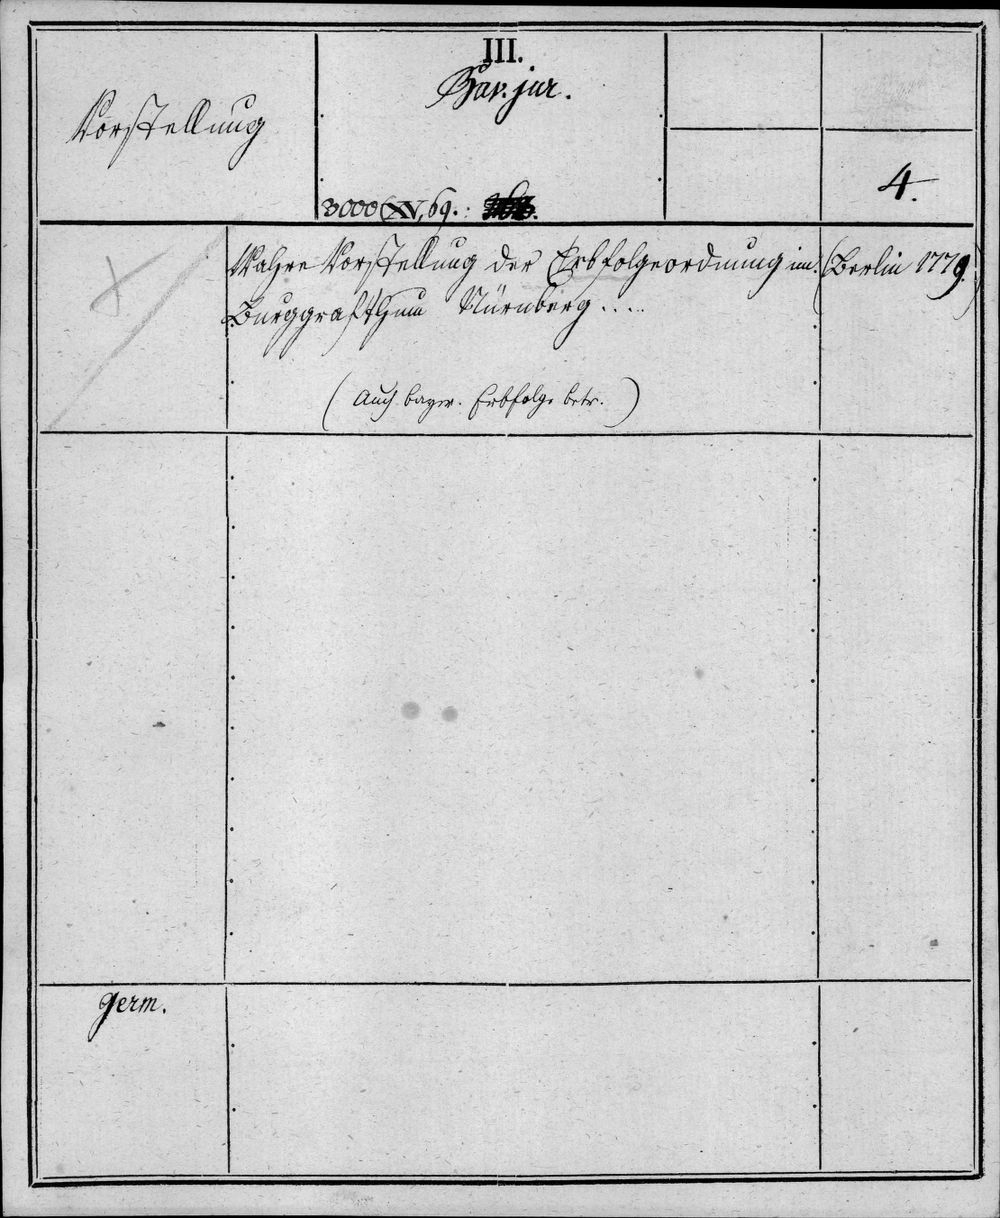 Vorstellung
III.
Bav. jur.
3000 XV, 69.
4.
Wahre Vorstellung der Erbfolgeordnung im
Burggrafthum Nürnberg ....
(Auch bayer. Erbfolge betr.)
(Berlin 1779.)
germ.